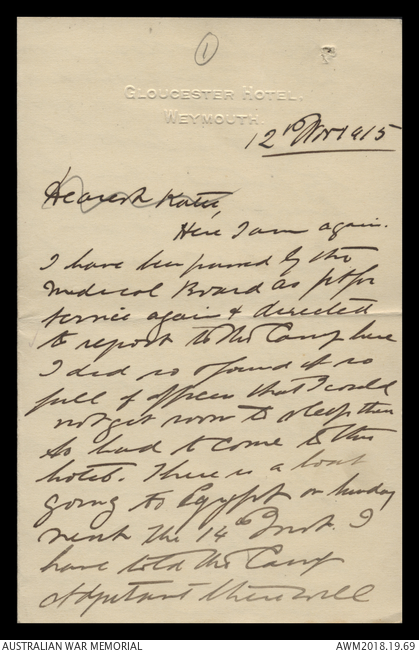 1
GLOUCESTER HOTEL,
WEYMOUTH.
12th Nov 1915
Dearest Katie,
Here I am again.
I have been passed by the
Medical Board as fit for
service again & directed
to report to the Camp here
I did so & found it so
full of officers that I could
not get room to sleep there
so had to come to this
hotel. There is a boat
going to Egypt on Sunday
next the 14th Inst. I
have told the Camp
Adjutant there will
AUSTRALIAN WAR MEMORIAL
AWM2018.19.69